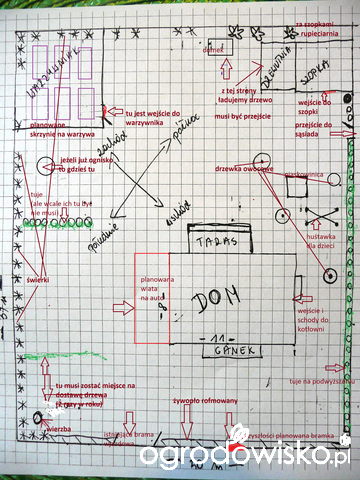 za szopkami
rupieciarnia
domek
DREWUTNIA
SZOPKA
WARZYWNIK
z tej strony
ładujemy drzewo
musi być przejście
wejście do
szopki
przejście do
sąsiada
tu jest wejście do
warzywnika
planowane
skrzynie na warzywa
zachód
północ
jeżeli już ognisko
to gdzieś tu
drzewka owocowe
piaskownica
tuje
(ale wcale ich tu być
nie musi)
południe
wschód
huśtawka
dla dzieci
TARAS
świerki
planowana
wiata
na auto
DOM
8
wejście i
schody do
kotłowni
11
GANEK
tuje na podwyższeniu
tu musi zostać miejsce na
dostawę drzewa
(2 razy w roku)
żywopło rofmowany
wierzba
istniejąca brama
wjazdowa
w przyszłości planowana bramka
ogrodowisko.pl